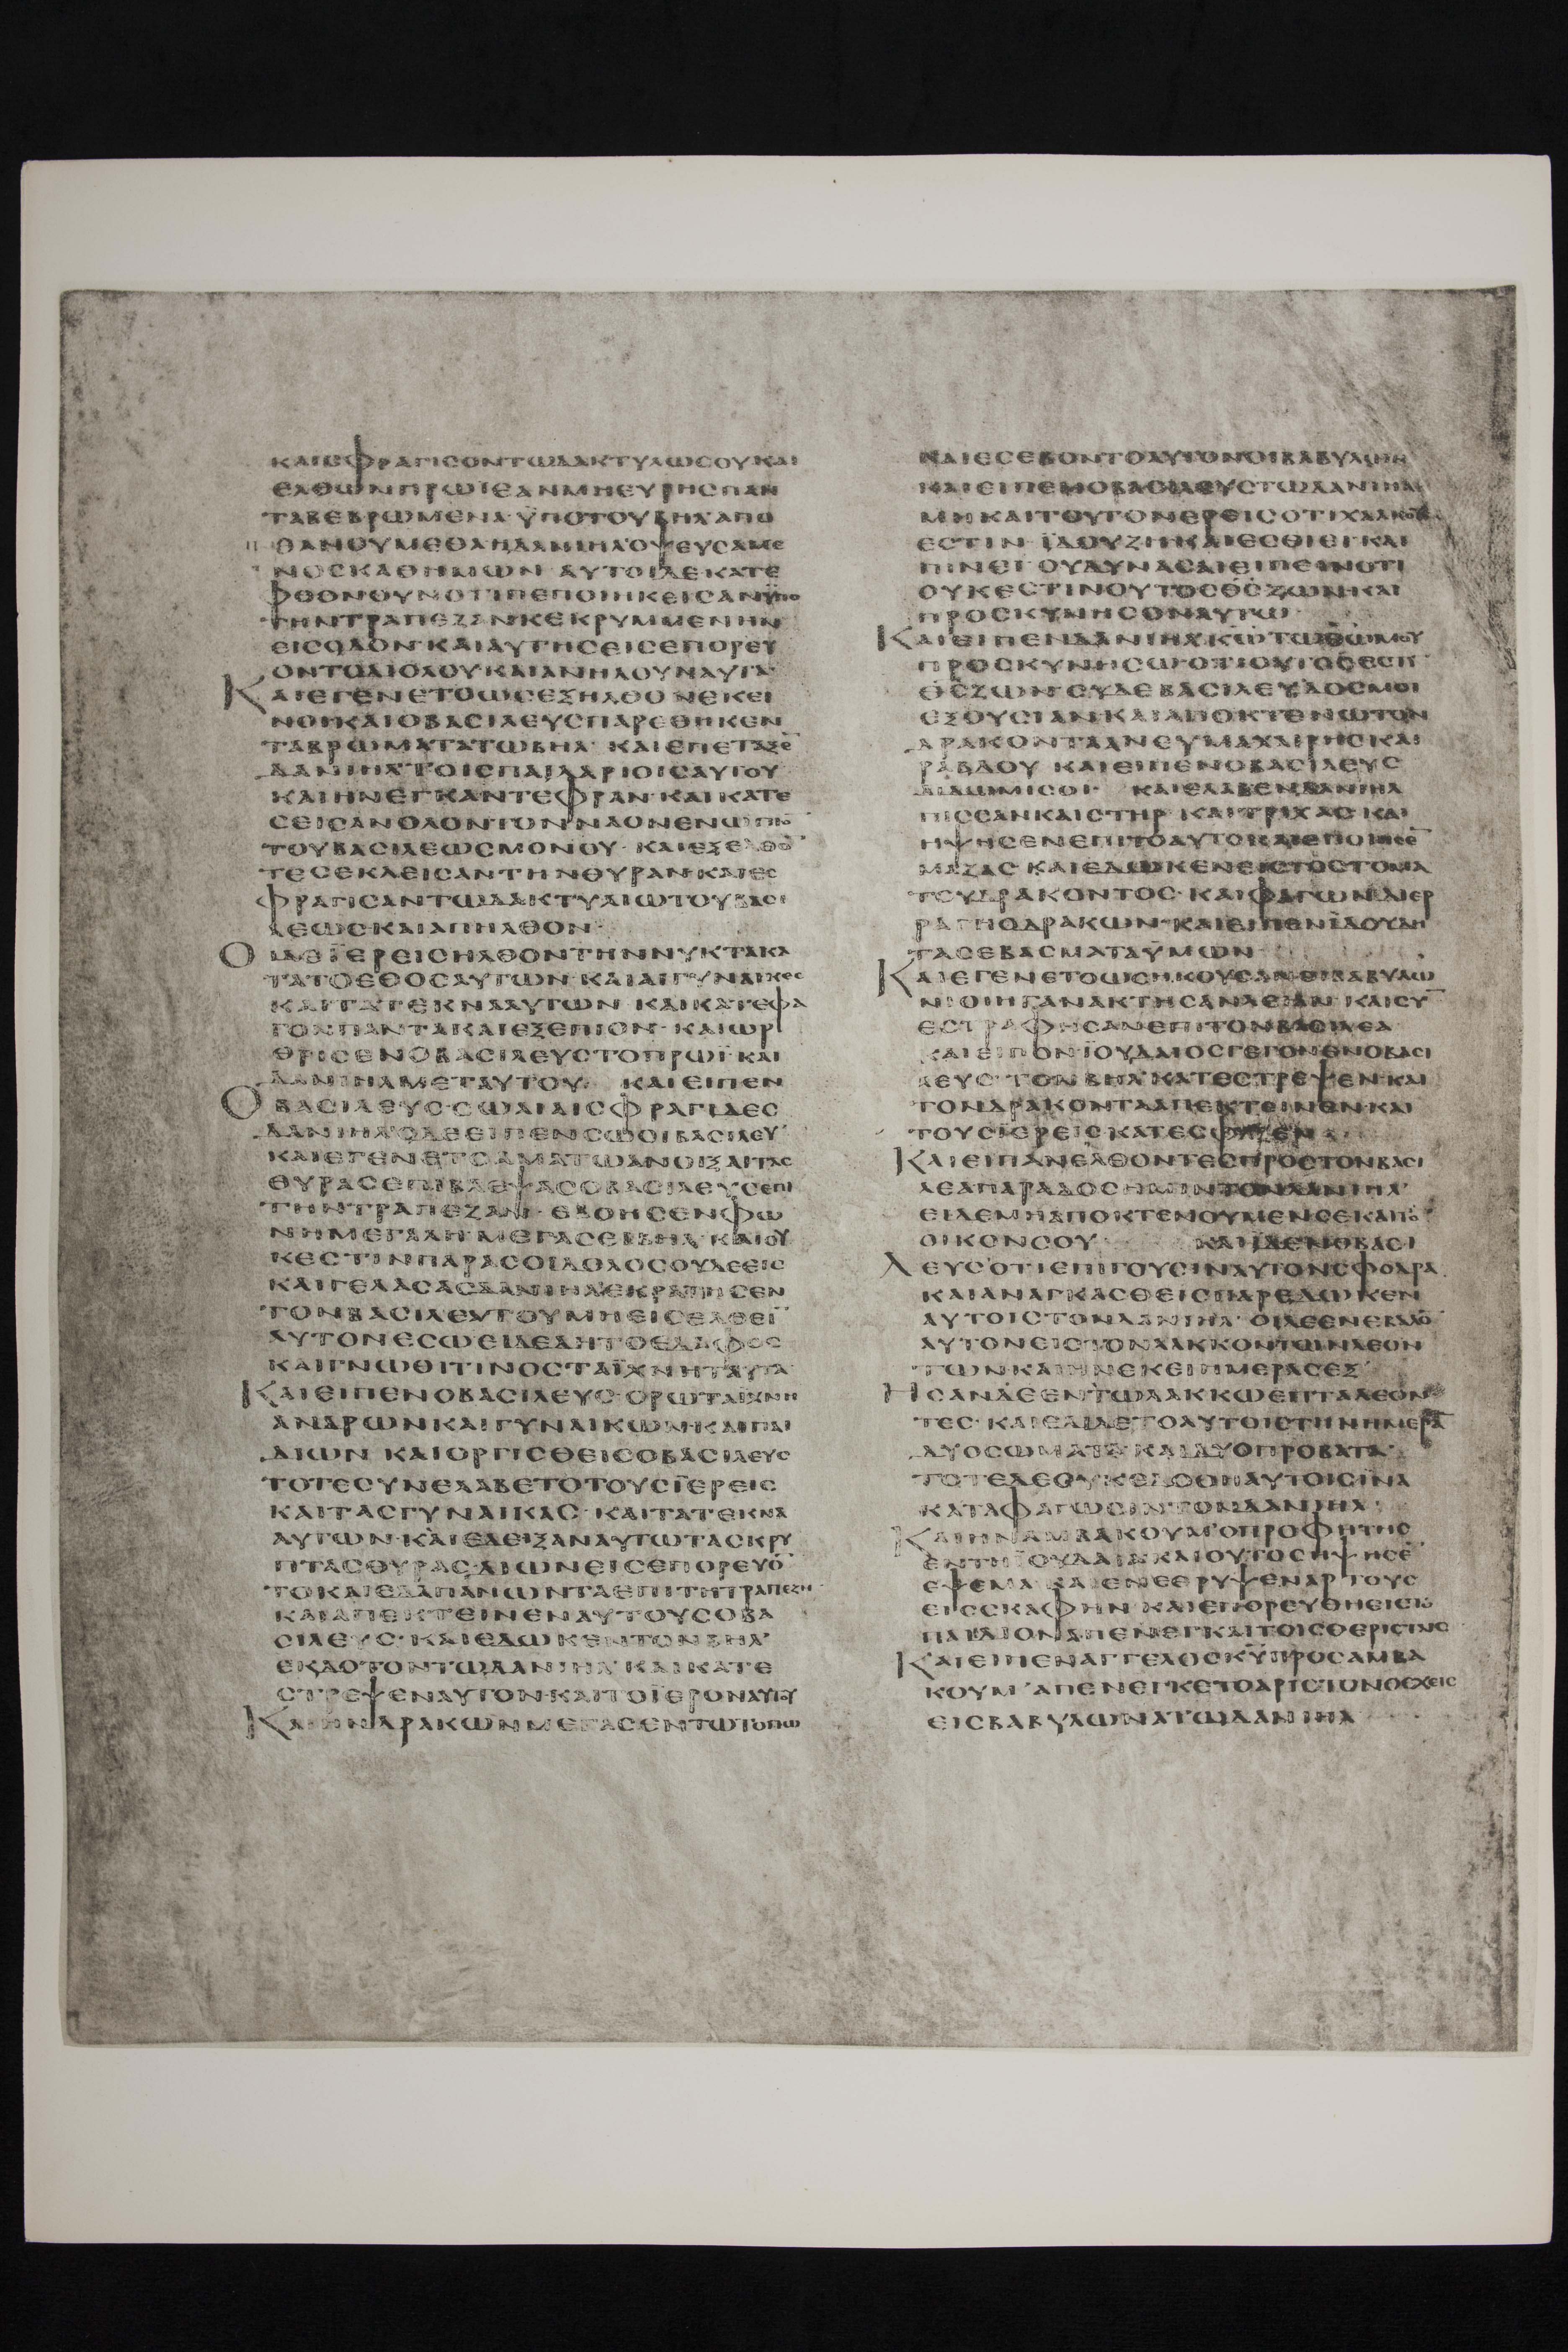 ΚΑΙΕΦΡΑΓΙΣΟΝΤΩΔΑΚΤΥΛΩΣΟΥΚΑΙ
ΕΛΘΩΝΠΡΩΙΕΑΝΜΗΕΥΡΗΣΠΑΝ
ΤΑΒΕΒΡΩΜΕΝΑ·ΫΠΟΤΟΥΒΗΛ᾽ΑΠΟ
ΘΑΝΟΥΜΕΘΑΗΔΑΝΙΗΛ᾽ΟΨΕΥΣΑΜΕ
ΝΟΣΚΑΘΗΜΩΝ·ΑΥΤΟΙΔΕΚΑΤΕ
ΦΘΟΝΟΥΝΟΤΙΠΕΠΟΙΗΚΕΙΣΑΝΫΠΟ
ΤΗΝΤΡΑΠΕΖΑΝΚΕΚΡΥΜΜΕΝΗΝ
ΕΙΣΟΔΟΝ·ΚΑΙΑΥΤΗΣΕΙΣΕΠΟΡΕΥ
ΟΝΤΩΔΙΟΛΟΥΚΑΙΑΝΗΛΟΥΝΑΥΤΑ
ΚΑΙΕΓΕΝΕΤΟΩΣΕΞΗΛΘΟΝΕΚΕΙ
ΝΟΙΚΑΙΟΒΑΣΙΛΕΥΣΠΑΡΕΘΗΚΕΝ
ΤΑΒΡΩΜΑΤΑΤΩΒΗΛ·ΚΑΙΕΠΕΤΑΞΕ̄
ΔΑΝΙΗΛ᾽ΤΟΙΣΠΑΙΔΑΡΙΟΙΣΑΥΤΟΥ
ΚΑΙΗΝΕΓΚΑΝΤΕΦΡΑΝ·ΚΑΙΚΑΤΕ
ΣΕΙΣΑΝΟΛΟΝΤΟΝΝΑΟΝΕΝΩΠΙΟ̄
ΤΟΥΒΑΣΙΛΕΩΣΜΟΝΟΥ·ΚΑΙΕΞΕΛΘΟ̄
ΤΕΣΕΚΛΕΙΣΑΝΤΗΝΘΥΡΑΝ·ΚΑΙΕΣ
ΦΡΑΓΙΣΑΝΤΩΔΑΚΤΥΛΙΩΤΟΥΒΑΣΙ
ΛΕΩΣΚΑΙΑΠΗΛΘΟΝ·
ΟΙΔΕΪΕΡΕΙΣΗΛΘΟΝΤΗΝΝΥΚΤΑΚΑ
ΤΑΤΟΕΘΟΣΑΥΤΩΝ·ΚΑΙΑΙΓΥΝΑΙΚΕΣ
ΚΑΙΤΑΤΕΚΝΑΑΥΤΩΝ·ΚΑΙΚΑΤΕΦΑ
ΓΟΝΠΑΝΤΑΚΑΙΕΞΕΠΙΟΝ·ΚΑΙΩΡ
ΘΡΙΣΕΝΟΒΑΣΙΛΕΥΣΤΟΠΡΩΪΚΑΙ
ΔΑΝΙΗΛΜΕΤΑΥΤΟΥ· ΚΑΙΕΙΠΕΝ
ΟΒΑΣΙΛΕΥΣ·ΣΩΑΙΑΙΣΦΡΑΓΙΔΕΣ
ΔΑΝΙΗΛ᾽ΟΔΕΕΙΠΕΝΣΩΟΙΒΑΣΙΛΕΥ᾽
ΚΑΙΕΓΕΝΕΤΟΑΜΑΤΩΑΝΟΙΞΑΙΤΑΣ
ΘΥΡΑΣΕΠΙΒΛΕΨΑΣΟΒΑΣΙΛΕΥΣΕΠΙ
ΤΗΝΤΡΑΠΕΖΑΝ·ΕΒΟΗΣΕΝΦΩ
ΝΗΜΕΓΑΛΗ·ΜΕΓΑΣΕΙΒΗΛ·ΚΑΙΟΥ
ΚΕΣΤΙΝΠΑΡΑΣΟΙΔΟΛΟΣΟΥΔΕΕΙΣ
ΚΑΙΓΕΛΑΣΑΣΔΑΝΙΗΛ᾽ΕΚΡΑΤΗΣΕΝ
ΤΟΝΒΑΣΙΛΕΑΤΟΥΜΗΕΙΣΕΛΘΕῙ
ΑΥΤΟΝΕΣΩΕΙΔΕΔΗΤΟΕΔΑΦΟΣ
ΚΑΙΓΝΩΘΙΤΙΝΟΣΤΑΪΧΝΗΤΑΥΤΑ
ΚΑΙΕΙΠΕΝΟΒΑΣΙΛΕΥΣ·ΟΡΩΤΑΪΧΝΗ
ΑΝΔΡΩΝΚΑΙΓΥΝΑΙΚΩΝ·ΚΑΙΠΑΙ
ΔΙΩΝ·ΚΑΙΟΡΓΙΣΘΕΙΣΟΒΑΣΙΛΕΥΣ
ΤΟΤΕΣΥΝΕΛΑΒΕΤΟΤΟΥΣΪΕΡΕΙΣ
ΚΑΙΤΑΣΓΥΝΑΙΚΑΣ·ΚΑΙΤΑΤΕΚΝΑ
ΑΥΤΩΝ·ΚΑΙΕΔΕΙΞΑΝΑΥΤΩΤΑΣΚΡΥ
ΠΤΑΣΘΥΡΑΣΔΙΩΝΕΙΣΕΠΟΡΕΥΟ̄
ΤΟΚΑΙΕΔΑΠΑΝΩΝΤΑΕΠΙΤΗΤΡΑΠΕΖΗ
ΚΑΙΑΠΕΚΤΕΙΝΕΝΑΥΤΟΥΣΟΒΑ
ΣΙΛΕΥΣ·ΚΑΙΕΔΩΚΕΝΤΟΝΒΗΛ᾽
ΕΚΔΟΤΟΝΤΩΔΑΝΙΗΛ᾽ΚΑΙΚΑΤΕ
ΣΤΡΕΨΕΝΑΥΤΟΝ·ΚΑΙΤΟΪΕΡΟΝΑΥΤΟΥ
ΚΑΙΗΝΔΡΑΚΩΝΜΕΓΑΣΕΝΤΩΤΟΠΩ
ΚΑΙΕΣΕΒΟΝΤΟΑΥΤΟΝΟΙΒΑΒΥΛΩΝΙ
ΚΑΙΕΙΠΕΝΟΒΑΣΙΛΕΥΣΤΩΔΑΝΙΗΛ
ΜΗΚΑΙΤΟΥΤΟΝΕΡΕΙΣΟΤΙΧΑΛΚΟΥΣ
ΕΣΤΙΝ·ΪΔΟΥΖΗΚΑΙΕΣΘΙΕΙ·ΚΑΙ
ΠΙΝΕΙ·ΟΥΔΥΝΑΣΑΙΕΙΠΕΙΝΟΤΙ
ΟΥΚΕΣΤΙΝΟΥΤΟΣΘ̄Σ̄ΖΩΝ·ΚΑΙ
ΠΡΟΣΚΥΝΗΣΟΝΑΥΤΩ
ΚΑΙΕΙΠΕΝΔΑΝΙΗΛ·Κ̄Ω̄ΤΩΘ̄Ω̄ΜΟΥ
ΠΡΟΣΚΥΝΗΣΩ·ΟΤΙΟΥΤΟΣΕΣΤΙ
Θ̄Σ̄ΖΩΝ·ΣΥΔΕΒΑΣΙΛΕΥΔΟΣΜΟΙ
ΕΞΟΥΣΙΑΝ·ΚΑΙΑΠΟΚΤΕΝΩΤΟΝ
ΔΡΑΚΟΝΤΑΑΝΕΥΜΑΧΑΙΡΗΣΚΑΙ
ΡΑΒΔΟΥ·ΚΑΙΕΙΠΕΝΟΒΑΣΙΛΕΥΣ
ΔΙΔΩΜΙΣΟΙ· ΚΑΙΕΛΑΒΕΝΔΑΝΙΗΛ
ΠΙΣΣΑΝΚΑΙΣΤΗΡ·ΚΑΙΤΡΙΧΑΣ·ΚΑΙ
ΗΨΗΣΕΝΕΠΙΤΟΑΥΤΟΚΑΙΕΠΟΙΗΣΕ̄
ΜΑΖΑΣ·ΚΑΙΕΔΩΚΕΝΕΙΣΤΟΣΤΟΜΑ
ΤΟΥΔΡΑΚΟΝΤΟΣ·ΚΑΙΦΑΓΩΝΔΙΕΡ
ΡΑΓΗΟΔΡΑΚΩΝ·ΚΑΙΕΙΠΕΝΪΔΟΥΔΗ
ΤΑΣΕΒΑΣΜΑΤΑΫΜΩΝ
ΚΑΙΕΓΕΝΕΤΟΩΣΗΚΟΥΣΑΝΟΙΒΑΒΥΛΩ
ΝΙΟΙΗΓΑΝΑΚΤΗΣΑΝΛΕΙΑΝ·ΚΑΙΣῩ
ΕΣΤΡΑΦΗΣΑΝΕΠΙΤΟΝΒΑΣΙΛΕΑ
ΚΑΙΕΙΠΟΝΪΟΥΔΑΙΟΣΓΕΓΟΝΕΝΟΒΑΣΙ
ΛΕΥΣ·ΤΟΝΒΗΛ᾽ΚΑΤΕΣΤΡΕΨΕΝ·ΚΑΙ
ΤΟΝΔΡΑΚΟΝΤΑΑΠΕΚΤΕΙΝΕΝΚΑΙ
ΤΟΥΣΪΕΡΕΙΣΚΑΤΕΣΦΑΞΕΝ
ΚΑΙΕΙΠΑΝΕΛΘΟΝΤΕΣΠΡΟΣΤΟΝΒΑΣΙ
ΛΕΑΠΑΡΑΔΟΣΗΜΙΝΤΟΝΔΑΝΙΗΛ᾽
ΕΙΔΕΜΗΑΠΟΚΤΕΝΟΥΜΕΝΣΕΚΑΙΤΟ̄
ΟΙΚΟΝΣΟΥ ΚΑΙΙΔΕΝΟΒΑΣΙ
ΛΕΥΣΟΤΙΕΠΙΓΟΥΣΙΝΑΥΤΟΝΣΦΟΔΡΑ
ΚΑΙΑΝΑΓΚΑΣΘΕΙΣΠΑΡΕΔΩΚΕΝ
ΑΥΤΟΙΣΤΟΝΔΑΝΙΗΛ·ΟΙΔΕΕΝΕΒΑΛΟ̄
ΑΥΤΟΝΕΙΣΤΟΝΛΑΚΚΟΝΤΩΝΛΕΟΝ
ΤΩΝΚΑΙΗΝΕΚΕΙΗΜΕΡΑΣΕΞ
ΗΣΑΝΔΕΕΝΤΩΛΑΚΚΩΕΠΤΑΛΕΟΝ
ΤΕΣ·ΚΑΙΕΔΙΔΕΤΟΑΥΤΟΙΣΤΗΝΗΜΕΡᾹ
ΔΥΟΣΩΜΑΤΑ·ΚΑΙΔΥΟΠΡΟΒΑΤΑ·
ΤΟΤΕΔΕΟΥΚΕΔΟΘΗΑΥΤΟΙΣΪΝΑ
ΚΑΤΑΦΑΓΩΣΙΝΤΟΝΔΑΝΙΗΛ·
ΚΑΙΗΝΑΜΒΑΚΟΥΜ᾽ΟΠΡΟΦΗΤΗΣ
ΕΝΤΗΪΟΥΔΑΙΑ·ΚΑΙΟΥΤΟΣΗΨΗΣΕ̄
ΕΨΕΜΑ·ΚΑΙΕΝΕΘΡΥΨΕΝΑΡΤΟΥΣ
ΕΙΣΣΚΑΦΗΝ·ΚΑΙΕΠΟΡΕΥΘΗΕΙΣΤΟ
ΠΑΙΔΙΟΝΑΠΕΝΕΓΚΑΙΤΟΙΣΘΕΡΙΣΤΑΙΣ
ΚΑΙΕΙΠΕΝΑΓΓΕΛΟΣΚ̄Ῡ·ΠΡΟΣΑΜΒΑ
ΚΟΥΜ᾽ΑΠΕΝΕΓΚΕΤΟΑΡΙΣΤΟΝΟΕΧΕΙΣ
ΕΙΣΒΑΒΥΛΩΝΑΤΩΔΑΝΙΗΛ